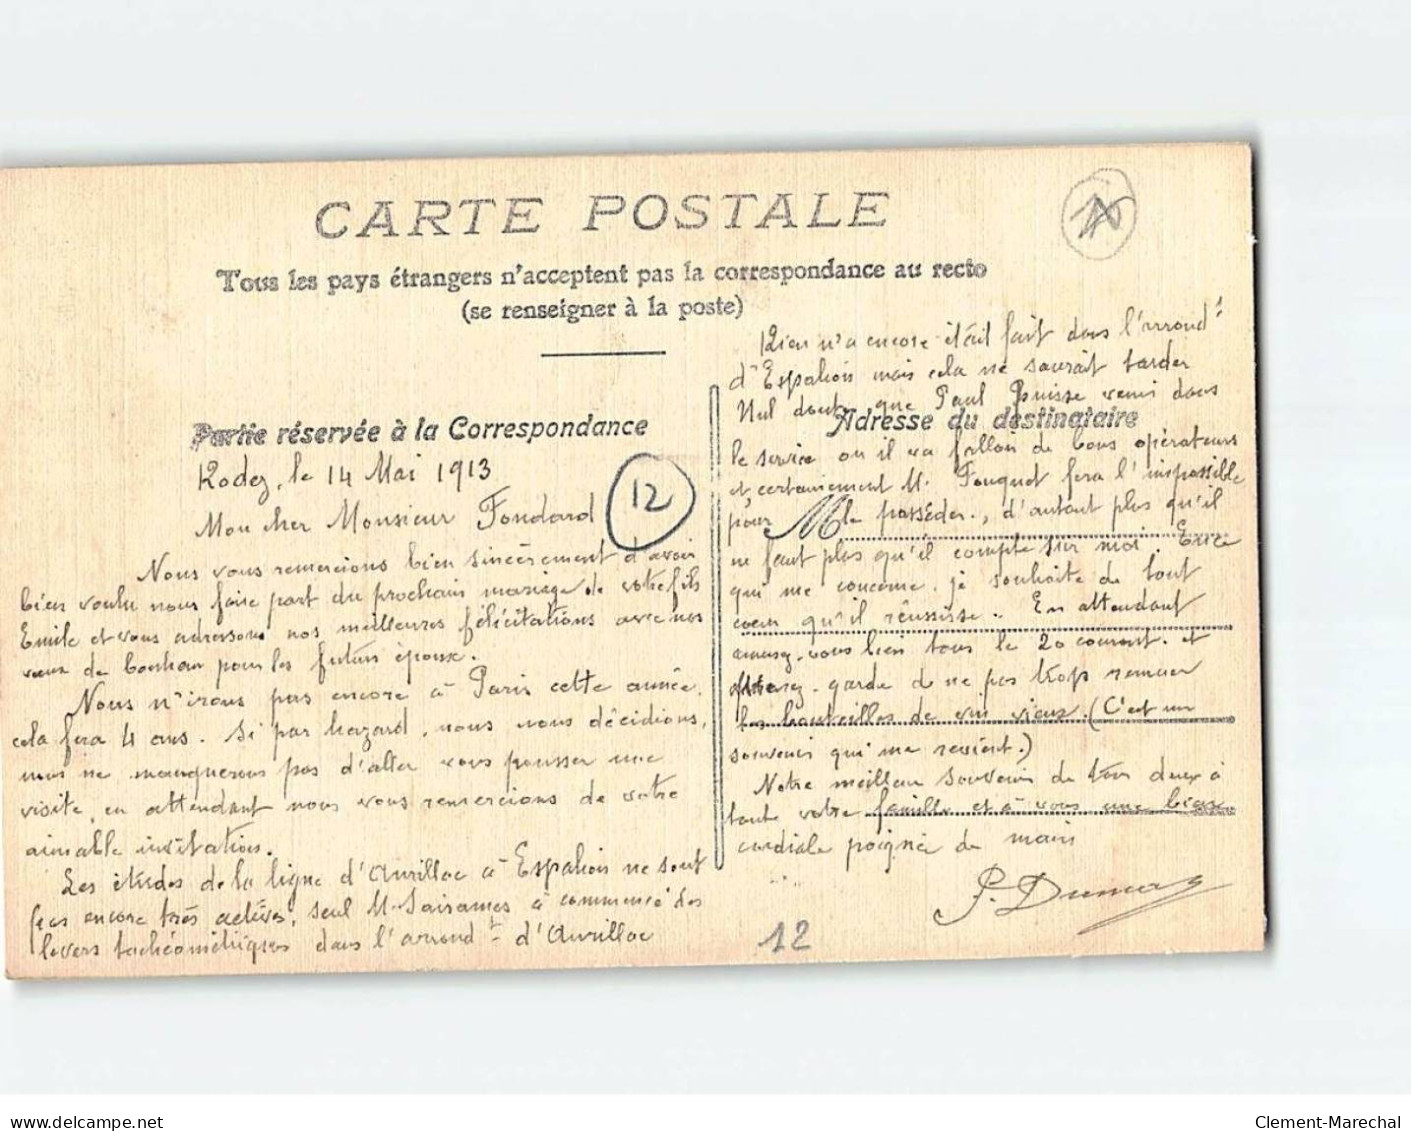 CARTE POSTALE
Tous les pays étrangers n'acceptent pas la correspondance au recto
(se renseigner à la poste)
Partie réservée à la Correspondance
Rodez, le 14 Mai 1913
12
Mon cher Monsieur Fondard
Nous vous remercions bien sincèrement d'avoir
bien voulu nous faire part du prochain mariage de votre fils
Emile et vous adressons nos meilleures félicitations avec nos
vœux de bonheur pour les futurs époux.
Nous n'irons pas encore à Paris cette année,
cela fera 4 ans. Si par hazard, nous nous décidions,
nous ne manquerons pas d'aller vous pousser une
visite, en attendant nous vous remercions de votre
aimable invitation.
Les études de la ligne d'Aurillac à Espalion ne sont
pas encore très actives, seul M. a commencé des
levers tachéométriques dans l'arrondt d'Aurillac
Rien n'a encore était fait dans l'arrondt
d'Espalion mais cela ne saurait tarder
Nul doute que Paul Puisse venir dans
Adresse du destinataire
le service où il va falloir de bons opérateurs
et certainement M. Fouquet fera l'impossible
pour le posséder, d'autant plus qu'il
M
ne faut plus qu'il compte sur moi. En ce
qui me concerne, je souhaite de tout
cœur qu'il réussisse. En attendant
amusez-vous bien tous le 20 courant et
garde de ne pas trop remuer
les bouteilles de vin vieux. (C'est un
souvenir qui me revient.)
Notre meilleur souvenir de tous deux à
toute votre famille et à vous une bien
cordiale poignée de main
P. Dumas
12
Clement-Marechal
www.delcampe.net